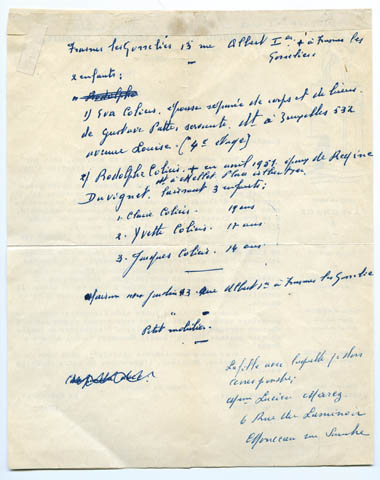 Frasnes lez Gosselies 13 rue Albert Ier + à Frasnes lez
Gosselies
2 enfants;
Rodolphe
1) Eva Colius, épouse séparée de corps et de biens
de Gustave Puttes à Bruxelles 532
avenue Louise. (4e étage)
2) Rodolphe Colius, + en avril 1951 époux de Regine
à Mellet
Duvignet, laissant 3 enfants;
1. Claire Colius. 19 ans
2. Yvette Colius. 17 ans
3. Jacques Colius. 14 ans
Maison avec jardin 13 rue Albert 1er à Frasnes lez Gosselies
Petit mobilier.
La fille avec laquelle je dois
correspondre;
Lucien Marcq
6 Rue du Laminoir
Monceau sur Sambre